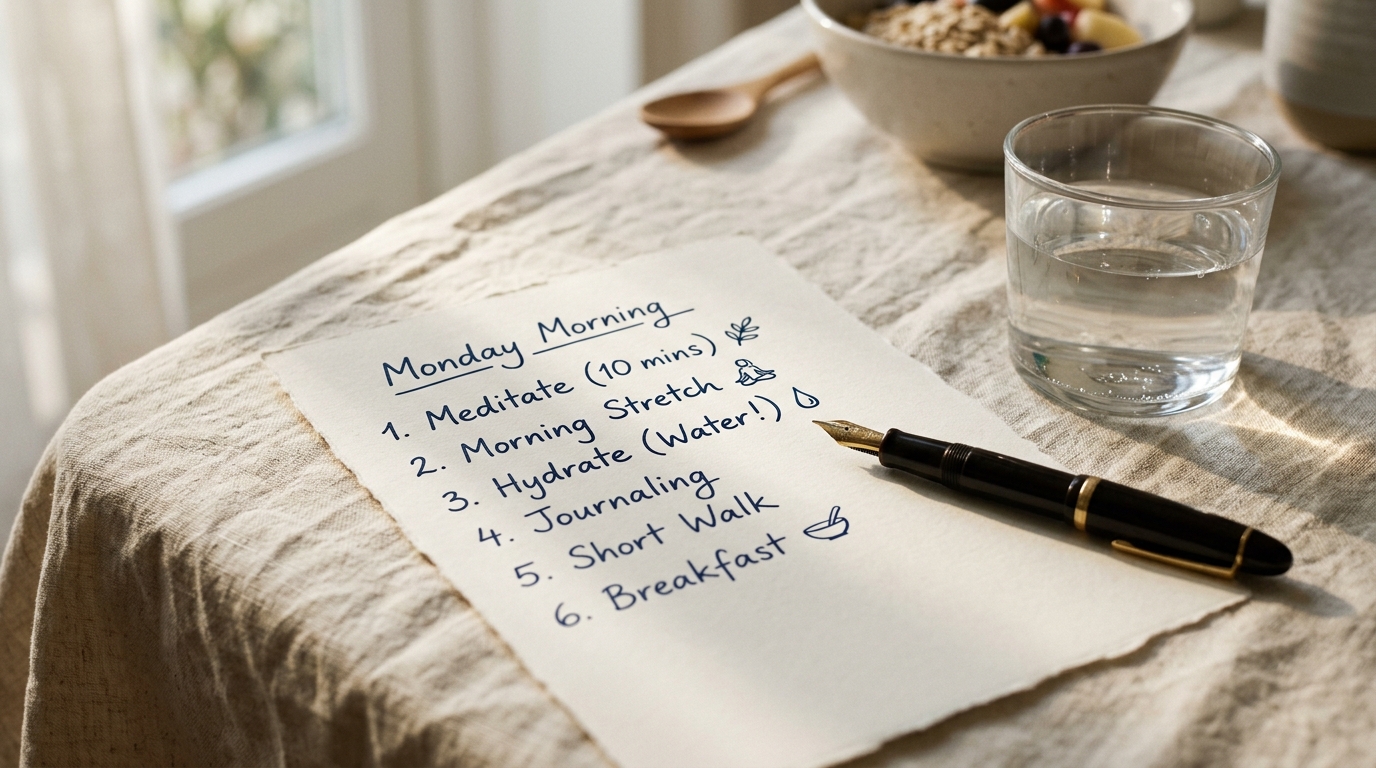 Monday Morning
1. Meditate (10 mins)
2. Morning Stretch
3. Hydrate (Water!)
4. Journaling
5. Short Walk
6. Breakfast